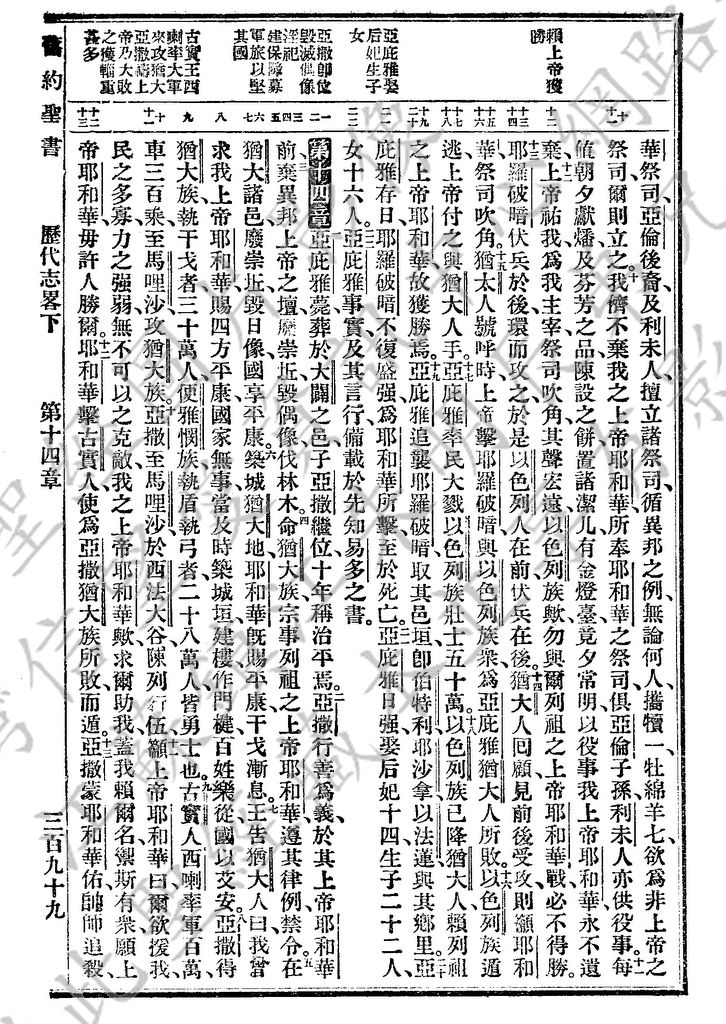 賴上帝獲勝
亞庇雅娶后妃生子女
亞撒卽位毀滅偶像淫祀
建保障募軍旅以堅其國
古實王西喇率大軍來攻猶大
亞撒禱上帝乃大敗之獲輜重甚多
華祭司亞倫後裔及利未人擅立諸祭司循異邦之例無論何人攜犢一牡綿羊七欲爲非上帝之
祭司爾則立之我儕不棄我之上帝耶和華所奉耶和華之祭司俱亞倫子孫利未人亦供役事每
値朝夕獻燔及芬芳之品陳設之餅置諸潔几有金燈臺竟夕常明以役事我上帝耶和華永不遺
棄上帝祐我爲我主宰祭司吹角其聲宏遠以色列族歟勿與爾列祖之上帝耶和華戰必不得勝
耶羅破暗伏兵於後環而攻之於是以色列人在前伏兵在後猶大人回顧見前後受攻則籲耶和
華祭司吹角猶太人號呼時上帝擊耶羅破暗與以色列族衆爲亞庇雅猶大人所敗以色列族遁
逃上帝付之與猶大人手亞庇雅率民大戮以色列族壯士五十萬以色列族已降猶大人賴列祖
之上帝耶和華故獲勝焉亞庇雅追襲耶羅破暗取其邑垣卽伯特利耶沙拿以法蓮與其鄉里亞
庇雅存日耶羅破暗不復盛强爲耶和華所擊至於死亡亞庇雅日强娶后妃十四生子二十二人
女十六人亞庇雅事實及其言行備載於先知易多之書
第十四章亞庇雅薨葬於大闢之邑子亞撒繼位十年稱治平焉亞撒行善爲義於其上帝耶和華
前棄異邦上帝之壇廢崇坵毀偶像伐林木命猶大族宗事列祖之上帝耶和華遵其律例禁令在
猶大諸邑廢崇坵毀日像國享平康築城猶大地耶和華旣賜平康干戈漸息王告猶大人曰我曾
求我上帝耶和華賜四方平康國家無事當及時築城垣建樓作門楗百姓樂從國以乂安亞撒得
猶大族執干戈者三十萬人便雅憫族執盾執弓者二十八萬人皆勇士也古實人西喇率軍百萬
車三百乘至馬哩沙攻猶大族亞撒至馬哩沙於西法大谷陳列行伍籲上帝耶和華曰爾欲援我
民之多寡力之強弱無不可以之克敵我之上帝耶和華歟求爾助我蓋我賴爾名禦斯有衆願上
帝耶和華毋許人勝爾耶和華擊古實人使爲亞撒猶大族所敗而遁亞撒蒙耶和華佑帥師追殺
舊約聖書
歷代志畧下
第十四章
三百九十九